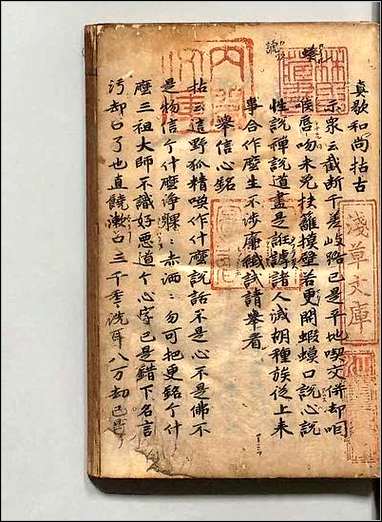 真歇和尚拈古
示衆云截斷千差岐路已是平地喫交併却咽
喉唇吻未免扶籬摸壁若更開蝦蟆口說心說
性說禪說道盡是誑謼諸人滅胡種族從上來
事合作麼生不涉廉纖試請舉看
舉信心銘
拈云這野狐精喚作什麼說話不是心不是佛不
是物信个什麼淨躶〻赤洒〻勿可把更銘个什
麼三祖大師不識好惡道个心字已是錯下名言
污却口了也直饒漱口三千年洗耳八万劫已是
淺草文庫